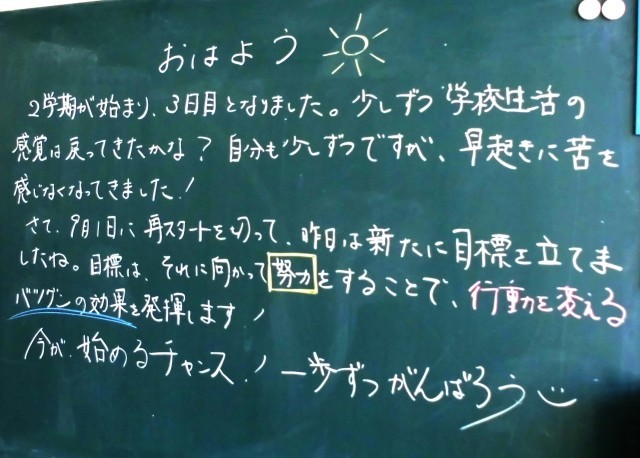 おはよう
2学期が始まり、3日目となりました。少しずつ学校生活の
感覚は戻ってきたかな？自分も少しずつですが、早起きに苦を
感じなくなってきました！
さて、9月1日に再スタートを切って、昨日は新たに目標を立てま
したね。目標は、それに向かって努力をすることで、行動を変える
バツグンの効果を発揮します！
今が、始めるチャンス！一歩ずつがんばろう